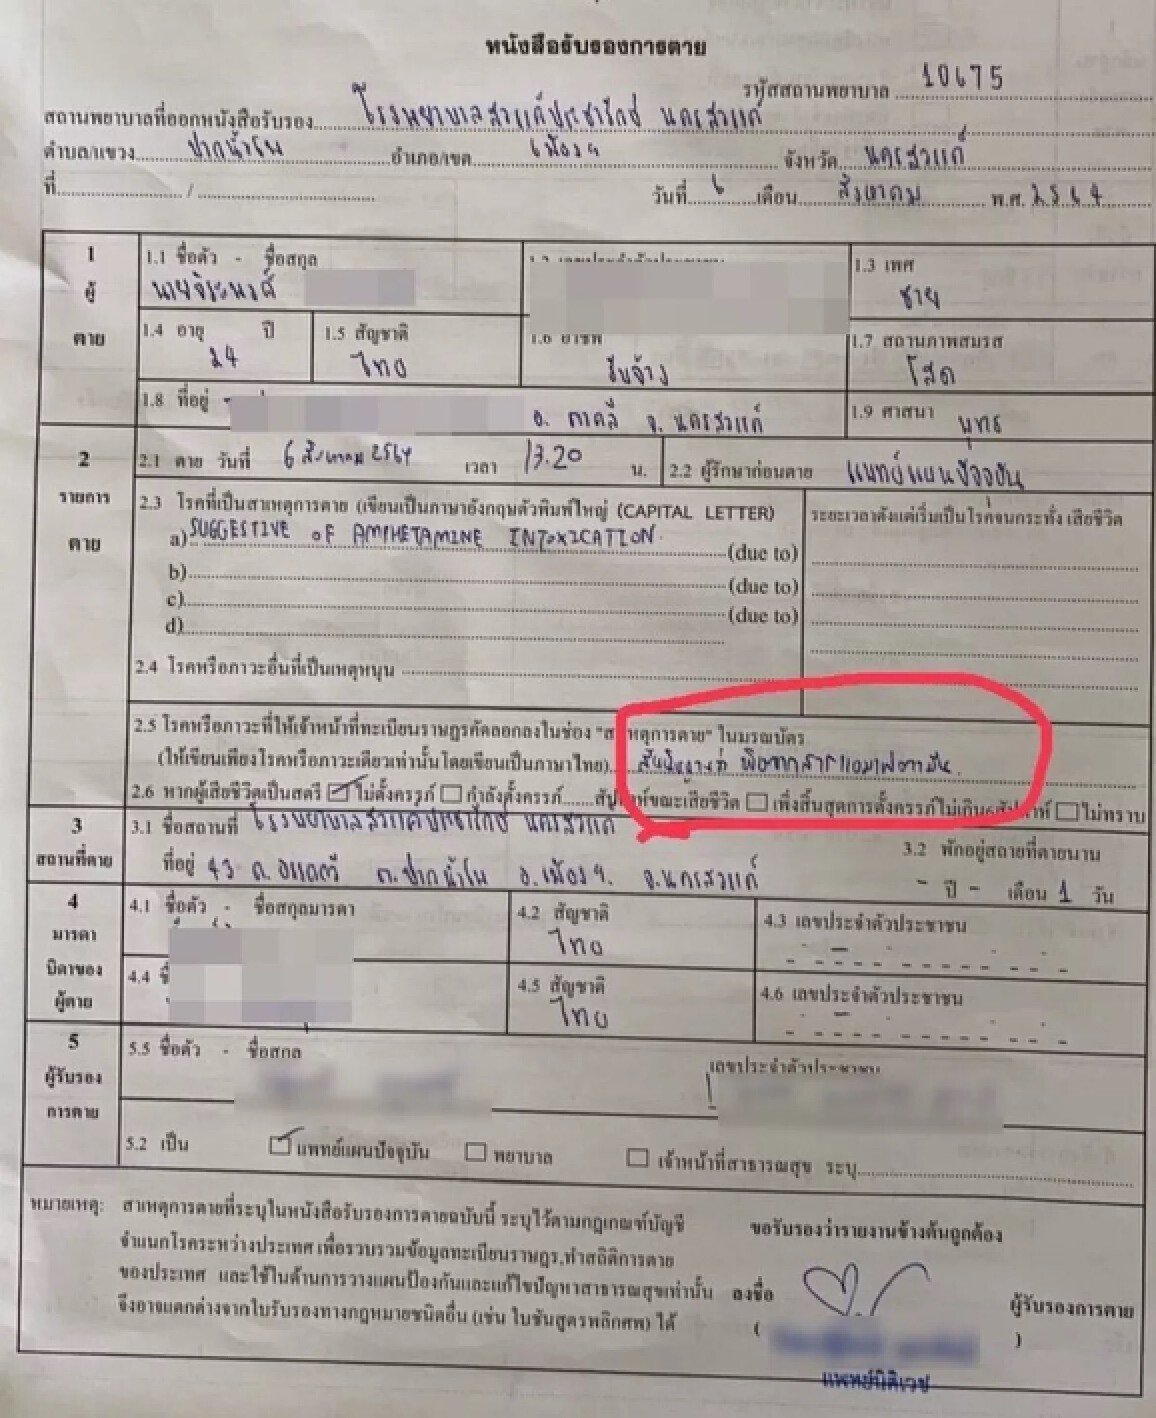 หนังสือรับรองการตาย
รหัสสถานพยาบาล 10675
สถานพยาบาลที่ออกหนังสือรับรอง โรงพยาบาลสวรรค์ประชารักษ์ นครสวรรค์
ตำบล/แขวง ปากน้ำโพ อำเภอ/เขต เมืองฯ จังหวัด นครสวรรค์
ที่ / วันที่ 6 เดือน สิงหาคม พ.ศ. 2564
1 ผู้ตาย
1.1 ชื่อตัว - ชื่อสกุล
นายจิระพงศ์
1.3 เพศ
ชาย
1.4 อายุ ปี
24
1.5 สัญชาติ
ไทย
1.6 อาชีพ
รับจ้าง
1.7 สถานภาพสมรส
โสด
1.8 ที่อยู่ อ. ตาคลี จ. นครสวรรค์
1.9 ศาสนา พุทธ
2 รายการตาย
2.1 ตาย วันที่ 6 สิงหาคม 2564 เวลา 13.20 น.
2.2 ผู้รักษาก่อนตาย แพทย์แผนปัจจุบัน
2.3 โรคที่เป็นสาเหตุการตาย (เขียนเป็นภาษาอังกฤษตัวพิมพ์ใหญ่ (CAPITAL LETTER)
ระยะเวลาตั้งแต่เริ่มเป็นโรคจนกระทั่ง เสียชีวิต
a) SUGGESTIVE OF AMPHETAMINE INTOXICATION. (due to)
b) (due to)
c) (due to)
d)
2.4 โรคหรือภาวะอื่นที่เป็นเหตุหนุน
2.5 โรคหรือภาวะที่ให้เจ้าหน้าที่ทะเบียนราษฎรคัดลอกลงในช่อง "สาเหตุการตาย" ในมรณบัตร
(ให้เขียนเพียงโรคหรือภาวะเดียวเท่านั้นโดยเขียนเป็นภาษาไทย) สันนิษฐานว่า พิษจากสารแอมเฟตามีน.
2.6 หากผู้เสียชีวิตเป็นสตรี ไม่ตั้งครรภ์ กำลังตั้งครรภ์ สัปดาห์ขณะเสียชีวิต เพิ่งสิ้นสุดการตั้งครรภ์ไม่เกิน 6 สัปดาห์ ไม่ทราบ
3 สถานที่ตาย
3.1 ชื่อสถานที่ โรงพยาบาลสวรรค์ประชารักษ์ นครสวรรค์
ที่อยู่ 43 ถ. อรรถกวี ต. ปากน้ำโพ อ. เมืองฯ. จ. นครสวรรค์
3.2 พักอยู่สถานที่ตายนาน
- ปี - เดือน 1 วัน
4 มารดา บิดาของ ผู้ตาย
4.1 ชื่อตัว - ชื่อสกุลมารดา
4.2 สัญชาติ
ไทย
4.3 เลขประจำตัวประชาชน
4.4
4.5 สัญชาติ
ไทย
4.6 เลขประจำตัวประชาชน
5 ผู้รับรอง การตาย
5.5 ชื่อตัว - ชื่อสกุล
เลขประจำตัวประชาชน
5.2 เป็น แพทย์แผนปัจจุบัน พยาบาล เจ้าหน้าที่สาธารณสุข ระบุ
หมายเหตุ: สาเหตุการตายที่ระบุในหนังสือรับรองการตายฉบับนี้ ระบุไว้ตามกฎเกณฑ์บัญชี
จำแนกโรคระหว่างประเทศ เพื่อรวบรวมข้อมูลทะเบียนราษฎร, ทำสถิติการตาย
ของประเทศ และใช้ในด้านการวางแผนป้องกันและแก้ไขปัญหาสาธารณสุขเท่านั้น
จึงอาจแตกต่างจากใบรับรองทางกฎหมายชนิดอื่น (เช่น ใบชันสูตรพลิกศพ) ได้
ขอรับรองว่ารายงานข้างต้นถูกต้อง
ลงชื่อ ผู้รับรองการตาย
( )
แพทย์นิติเวช